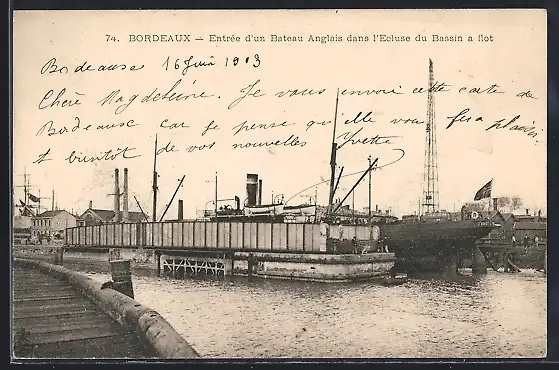 74. BORDEAUX — Entrée d'un Bateau Anglais dans l'Ecluse du Bassin a flot
Bordeausse 16 juin 1903
Chère Magdeleine. Je vous envoi cette carte de
Bordeausse car je pense qu'elle vous fera plaisir
à bientôt de vos nouvelles Yvette